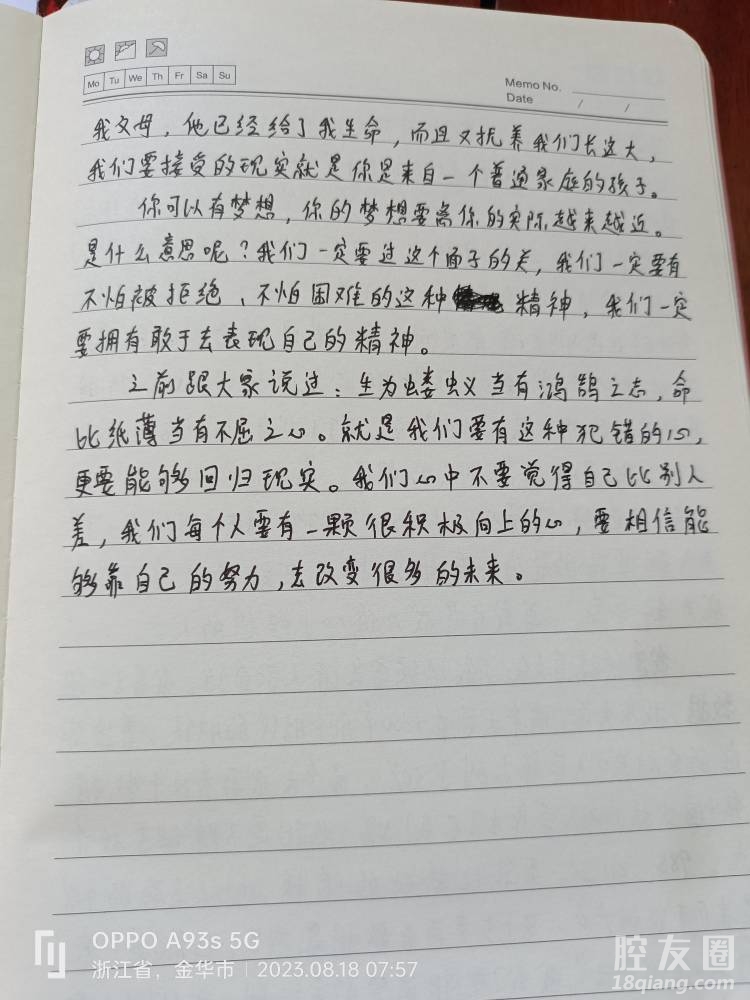 Mo Tu We Th Fr Sa Su
Memo No.
Date / /
我父母，他已经给了我生命，而且又抚养我们长这大，
我们要接受的现实就是你是来自一个普通家庭的孩子。
你可以有梦想，你的梦想要离你的实际越来越近。
是什么意思呢？我们一定要过这个面子的关，我们一定要有
不怕被拒绝、不怕困难的这种精神，我们一定
要拥有敢于去表现自己的精神。
之前跟大家说过：生为蝼蚁当有鸿鹄之志，命
比纸薄当有不屈之心。就是我们要有这种犯错的心，
更要能够回归现实。我们心中不要觉得自己比别人
差，我们每个人要有一颗很积极向上的心，要相信能
够靠自己的努力，去改变很多的未来。
OPPO A93s 5G
浙江省，金华市 | 2023.08.18 07:57
腔友圈
18qiang.com